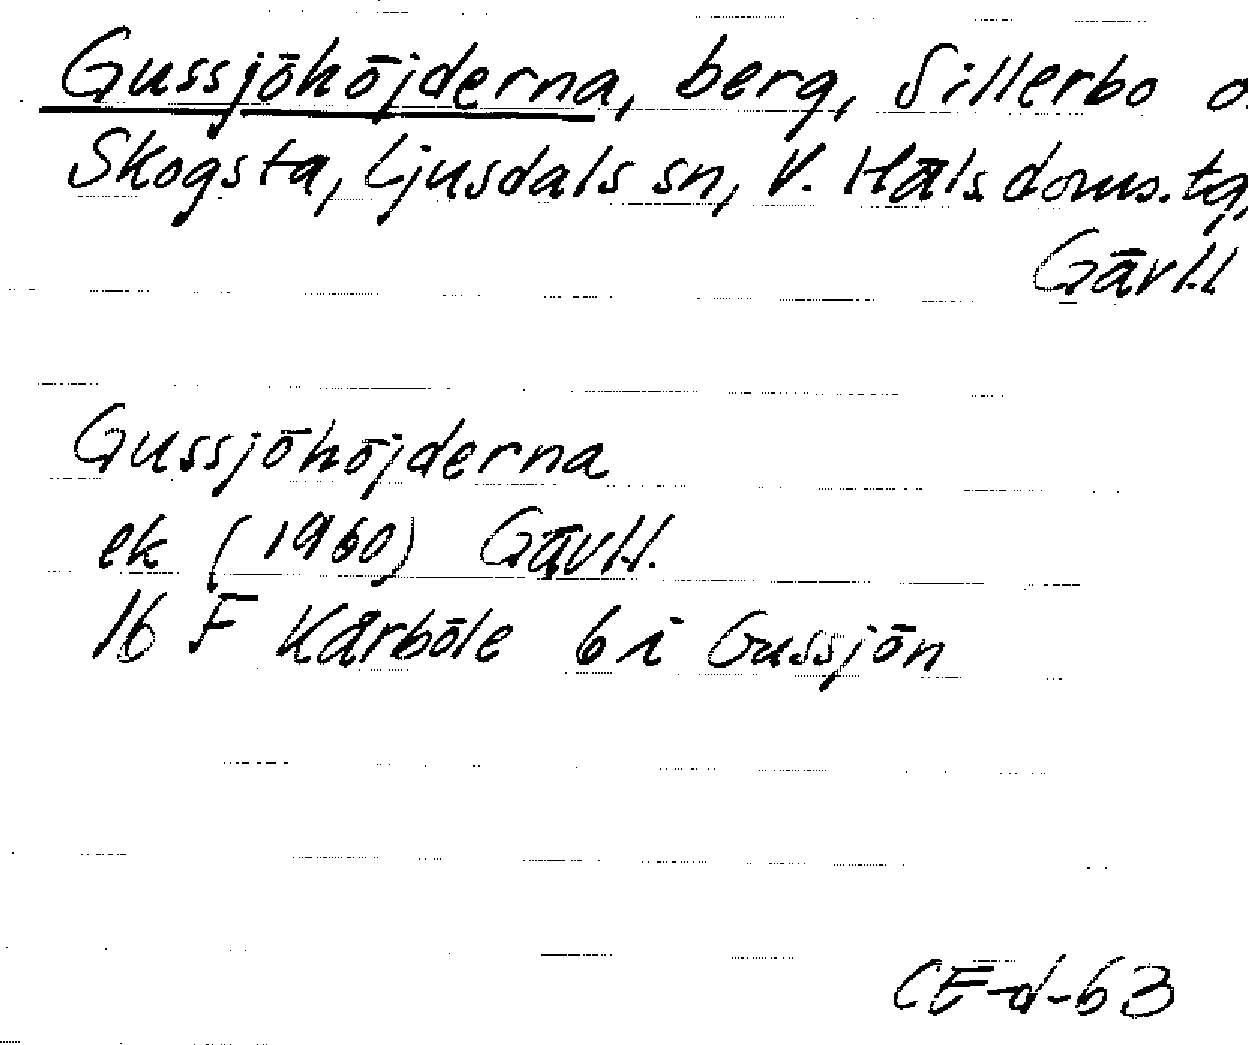 Gussjöhöjderna, berg, Sillerbo o.
Skogsta, Ljusdals sn, V. Häls. doms.tg,
Gävl.l
Gussjöhöjderna
ek (1960) Gävl.l.
16 F Kårböle 6 i Gussjön
CE-d-63